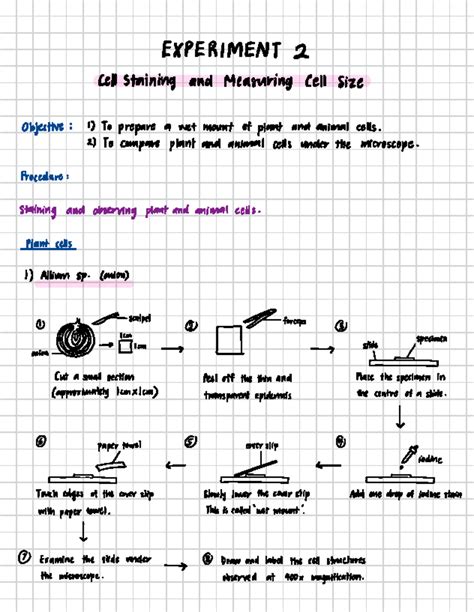 EXPERIMENT 2
Cell Staining and Measuring Cell Size
Objective : 1) To prepare a wet mount of plant and animal cells.
2) To compare plant and animal cells under the microscope.
Procedure :
Staining and observing plant and animal cells.
Plant cells
1) Allium sp. (onion)
① scalpel 1cm 1cm onion
② forceps
③ slide specimen
Cut a small section
(approximately 1cm x 1cm)
Peel off the thin and
transparent epidermis
Place the specimen in
the centre of a slide.
⑥ paper towel
⑤ cover slip
④ iodine
Touch edges of the cover slip
with paper towel.
Slowly lower the cover slip
This is called 'wet mount'.
Add one drop of iodine stain
⑦ Examine the slide under
the microscope.
⑧ Draw and label the cell structures
observed at 400x magnification.